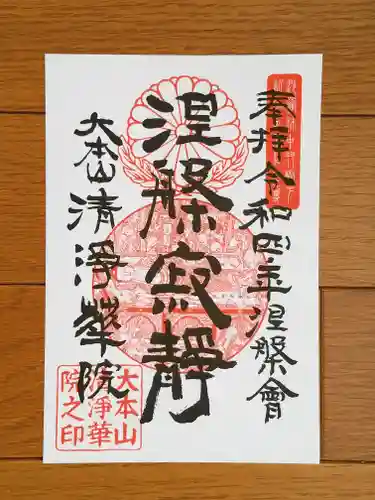 奉拝 令和四年涅槃會
涅槃寂静
大本山清浄華院
大本山
清浄華
院之印